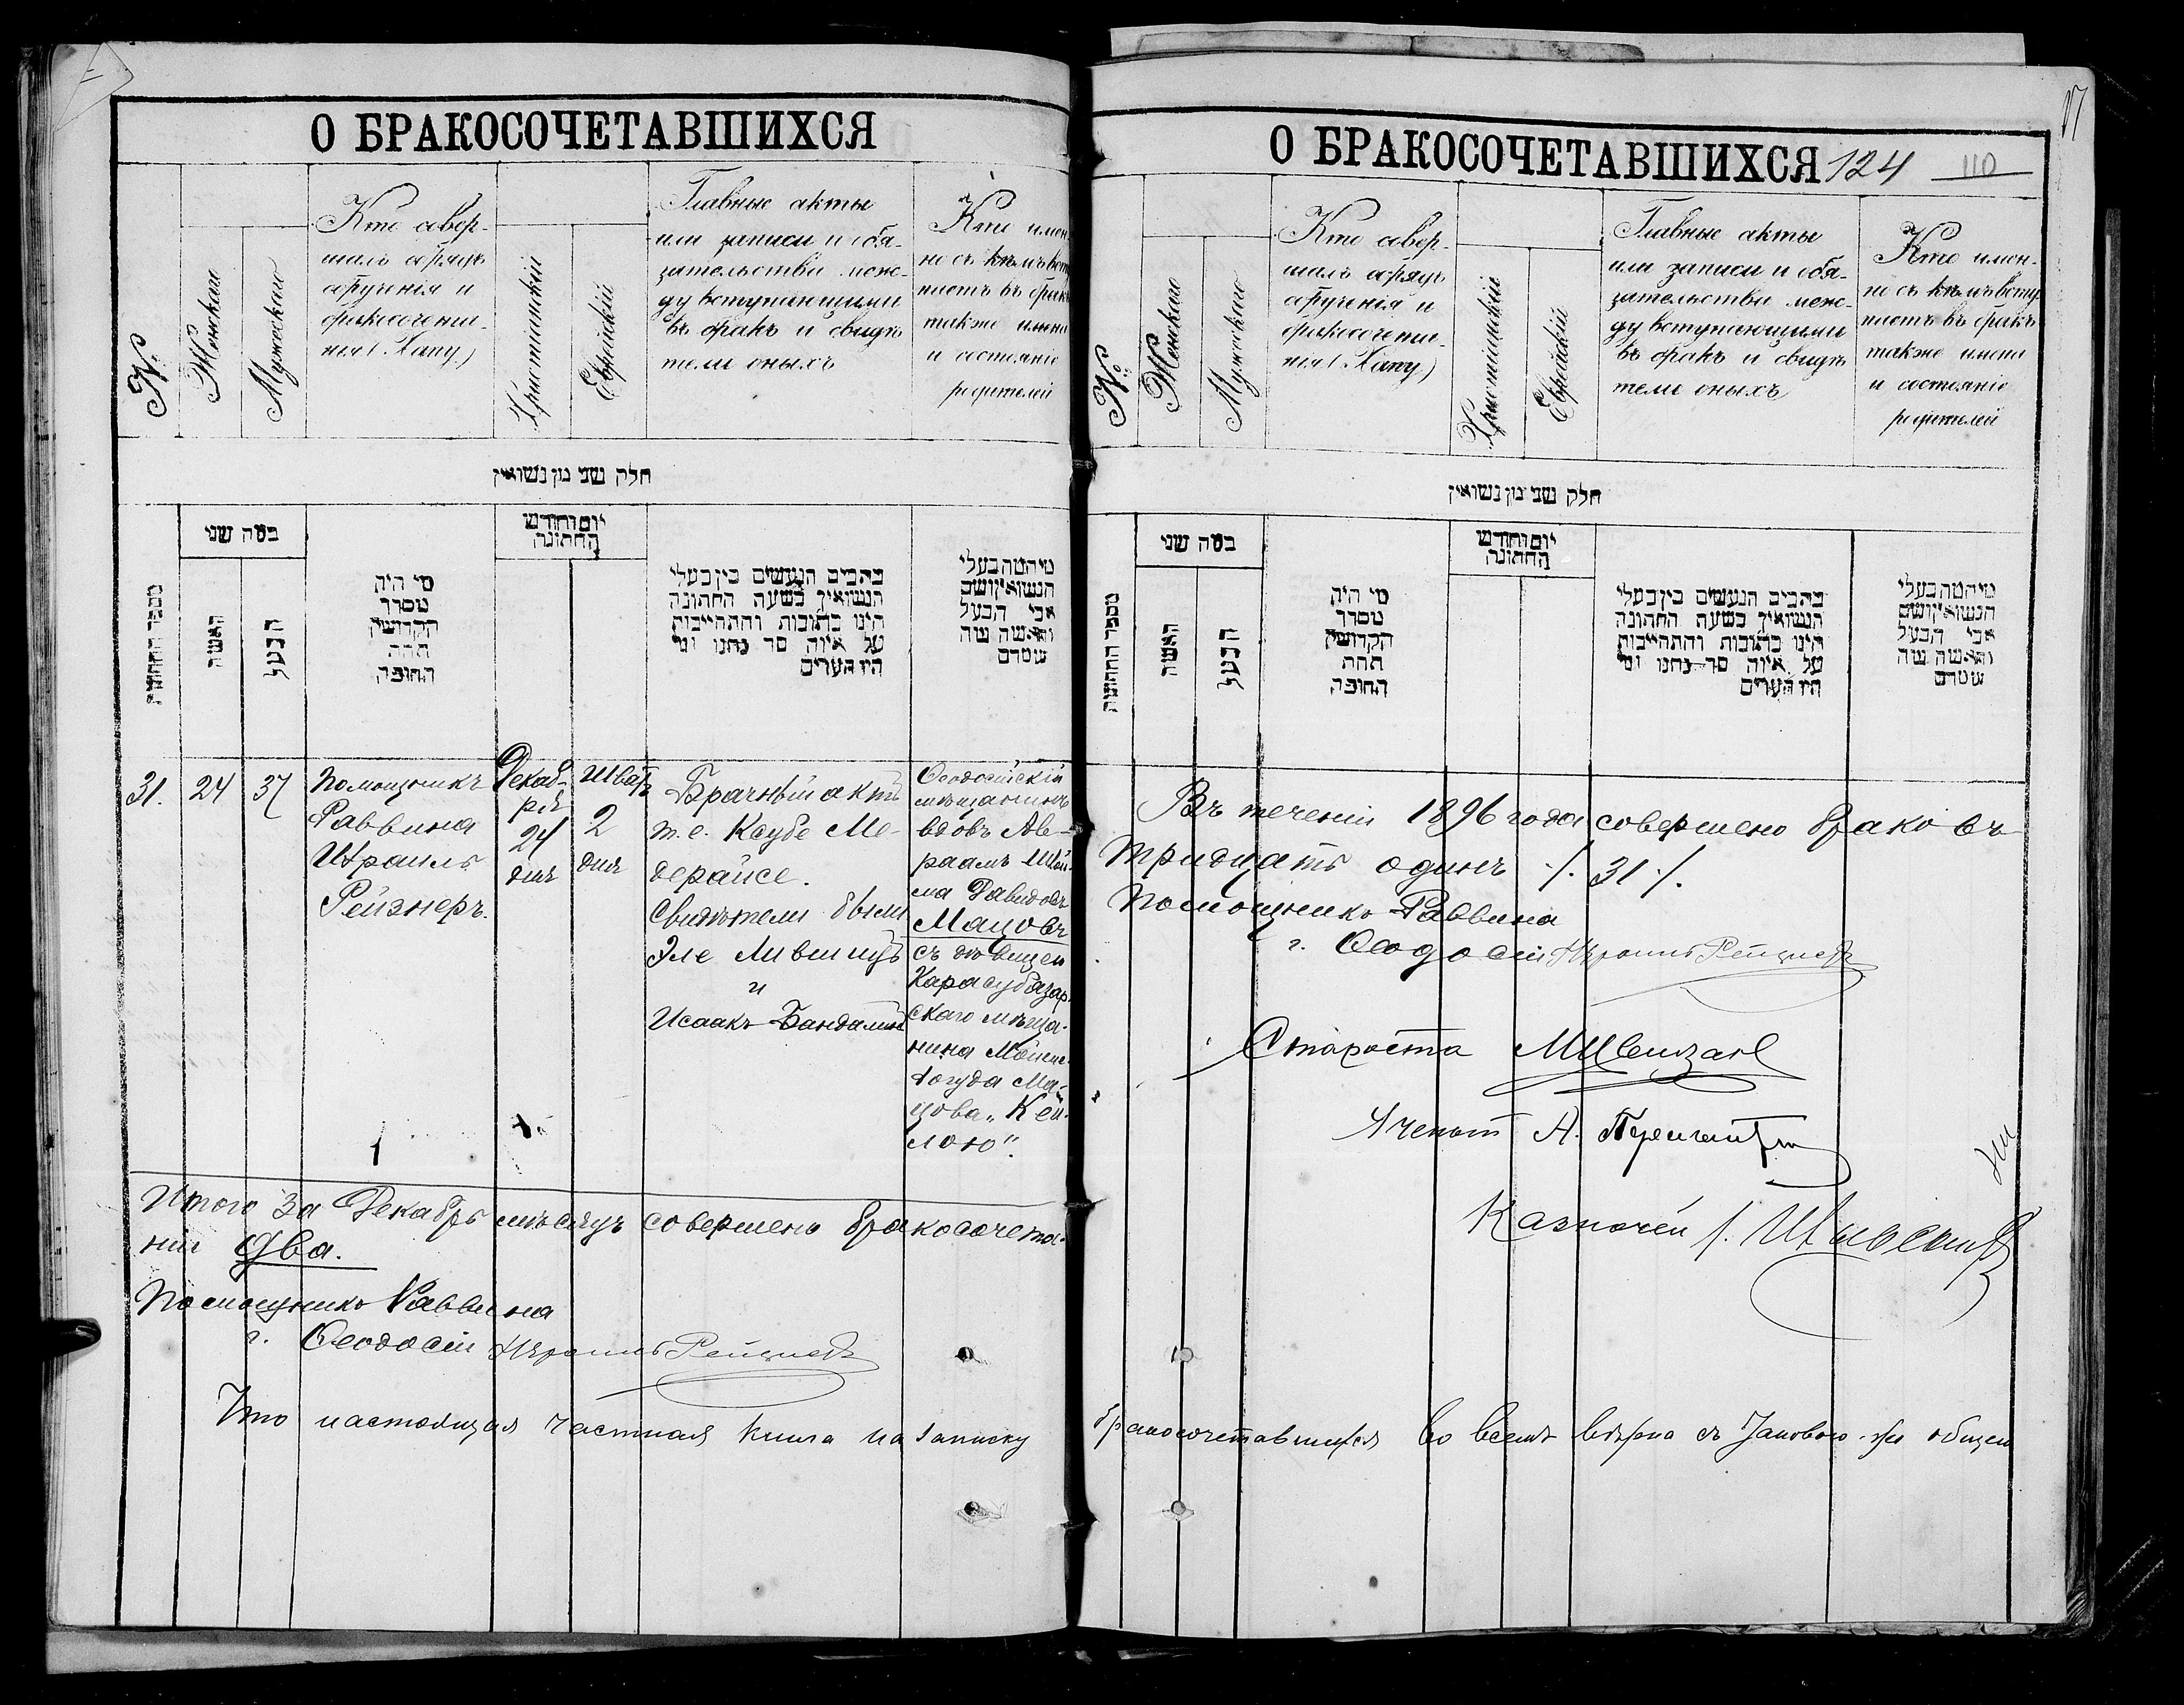 О БРАКОСОЧЕТАВШИХСЯ
№
Женскаго
Мужескаго
Кто совер-
шалъ обрядъ
обрученія и
бракосочета-
нія (Хапу)
Христіанскій
Еврейскій
Главные акты
или записи и обя-
зательства меж-
ду вступающими
въ бракъ и свидѣ
тели оныхъ
Кто имен-
но съ кѣмъ всту
паетъ въ бракъ
также имена
и состояніе
родителей
חלק שני מן נשואין
מספר החתונות
כמה שני
האשה
הבעל
מי היה
מסדר
הקדושין
תחת
החופה
יום וחודש
החתונה
כתבים הנעשים בין בעלי
הנשואין בשעת החתונה
היינו כתובות והתחייבות
על איזה סך נתנו ומי
היו העדים
מי המה בעלי
הנשואין ושם
אבי הבעל
והאשה
31.
24
37
Помощникъ
Раввина
Израиль
Рейзнеръ.
Декаб-
ря
24
дня
Швать
2
дня
Брачный актъ
т. е. Ксубе Ме-
дерайсе.
Свидѣтели были
Эле Лившицъ
и
Исаакъ
Ѳеодосійскій
мѣщанинъ
вдовъ Ав-
раамъ Шой-
ма Давидовъ
Мацовъ
съ дѣвицей
Карасубазар-
скаго мѣща-
нина Мойше-
Іогуда Ма-
цова „Кей-
лою“.
Итого за Декабрь мѣсяцъ совершено бракосочета-
ній два.
Помощникъ Раввина
г. Ѳеодосіи Израиль Рейзнеръ
Что настоящая частная книга на записку
О БРАКОСОЧЕТАВШИХСЯ 124 110
17
№
Женскаго
Мужескаго
Кто совер-
шалъ обрядъ
обрученія и
бракосочета-
нія (Хапу)
Христіанскій
Еврейскій
Главные акты
или записи и обя-
зательства меж-
ду вступающими
въ бракъ и свидѣ
тели оныхъ
Кто имен-
но съ кѣмъ всту
паетъ въ бракъ
также имена
и состояніе
родителей
חלק שני מן נשואין
מספר החתונות
כמה שני
האשה
הבעל
מי היה
מסדר
הקדושין
תחת
החופה
יום וחודש
החתונה
כתבים הנעשים בין בעלי
הנשואין בשעת החתונה
היינו כתובות והתחייבות
על איזה סך נתנו ומי
היו העדים
מי המה בעלי
הנשואין ושם
אבי הבעל
והאשה
Въ теченіи 1896 года совершено браковъ
тридцать одинъ ./. 31 ./.
Помощникъ Раввина
г. Ѳеодосіи Израиль Рейзнеръ
Староста
Ученый А.
Казначей
бракосочетавшихся во всемъ вѣрна съ таковою же общею